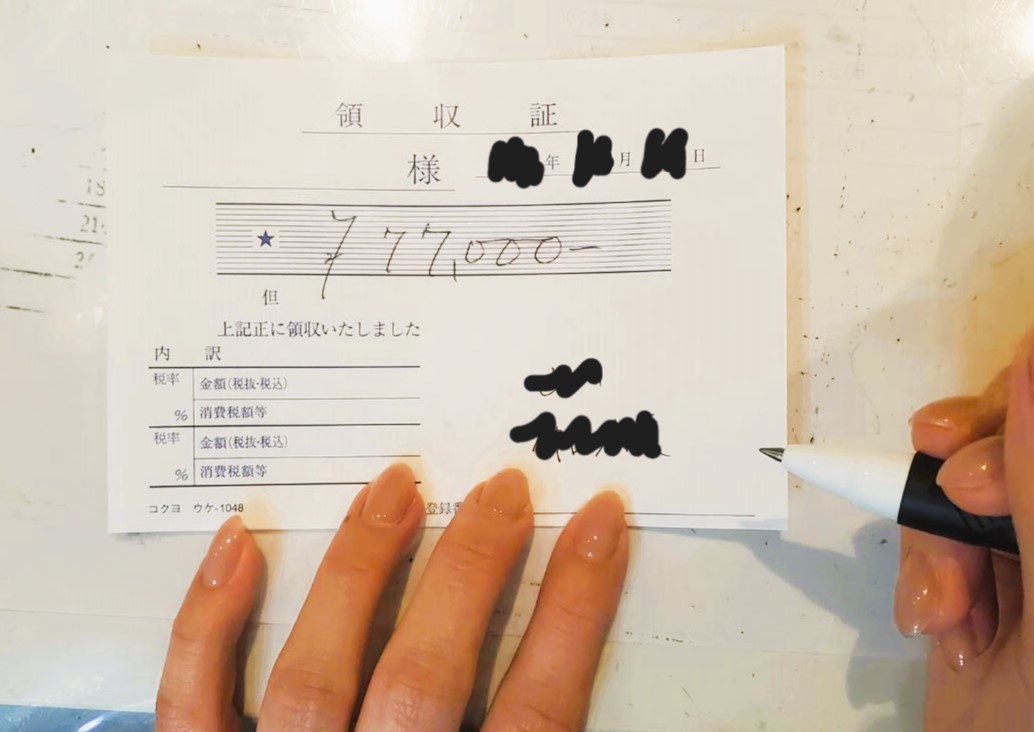 領収証
様 年 月 日
★ ¥77,000-
但
上記正に領収いたしました
内訳
税率 金額(税抜・税込)
% 消費税額等
税率 金額(税抜・税込)
% 消費税額等
コクヨ ウケ-1048 登録